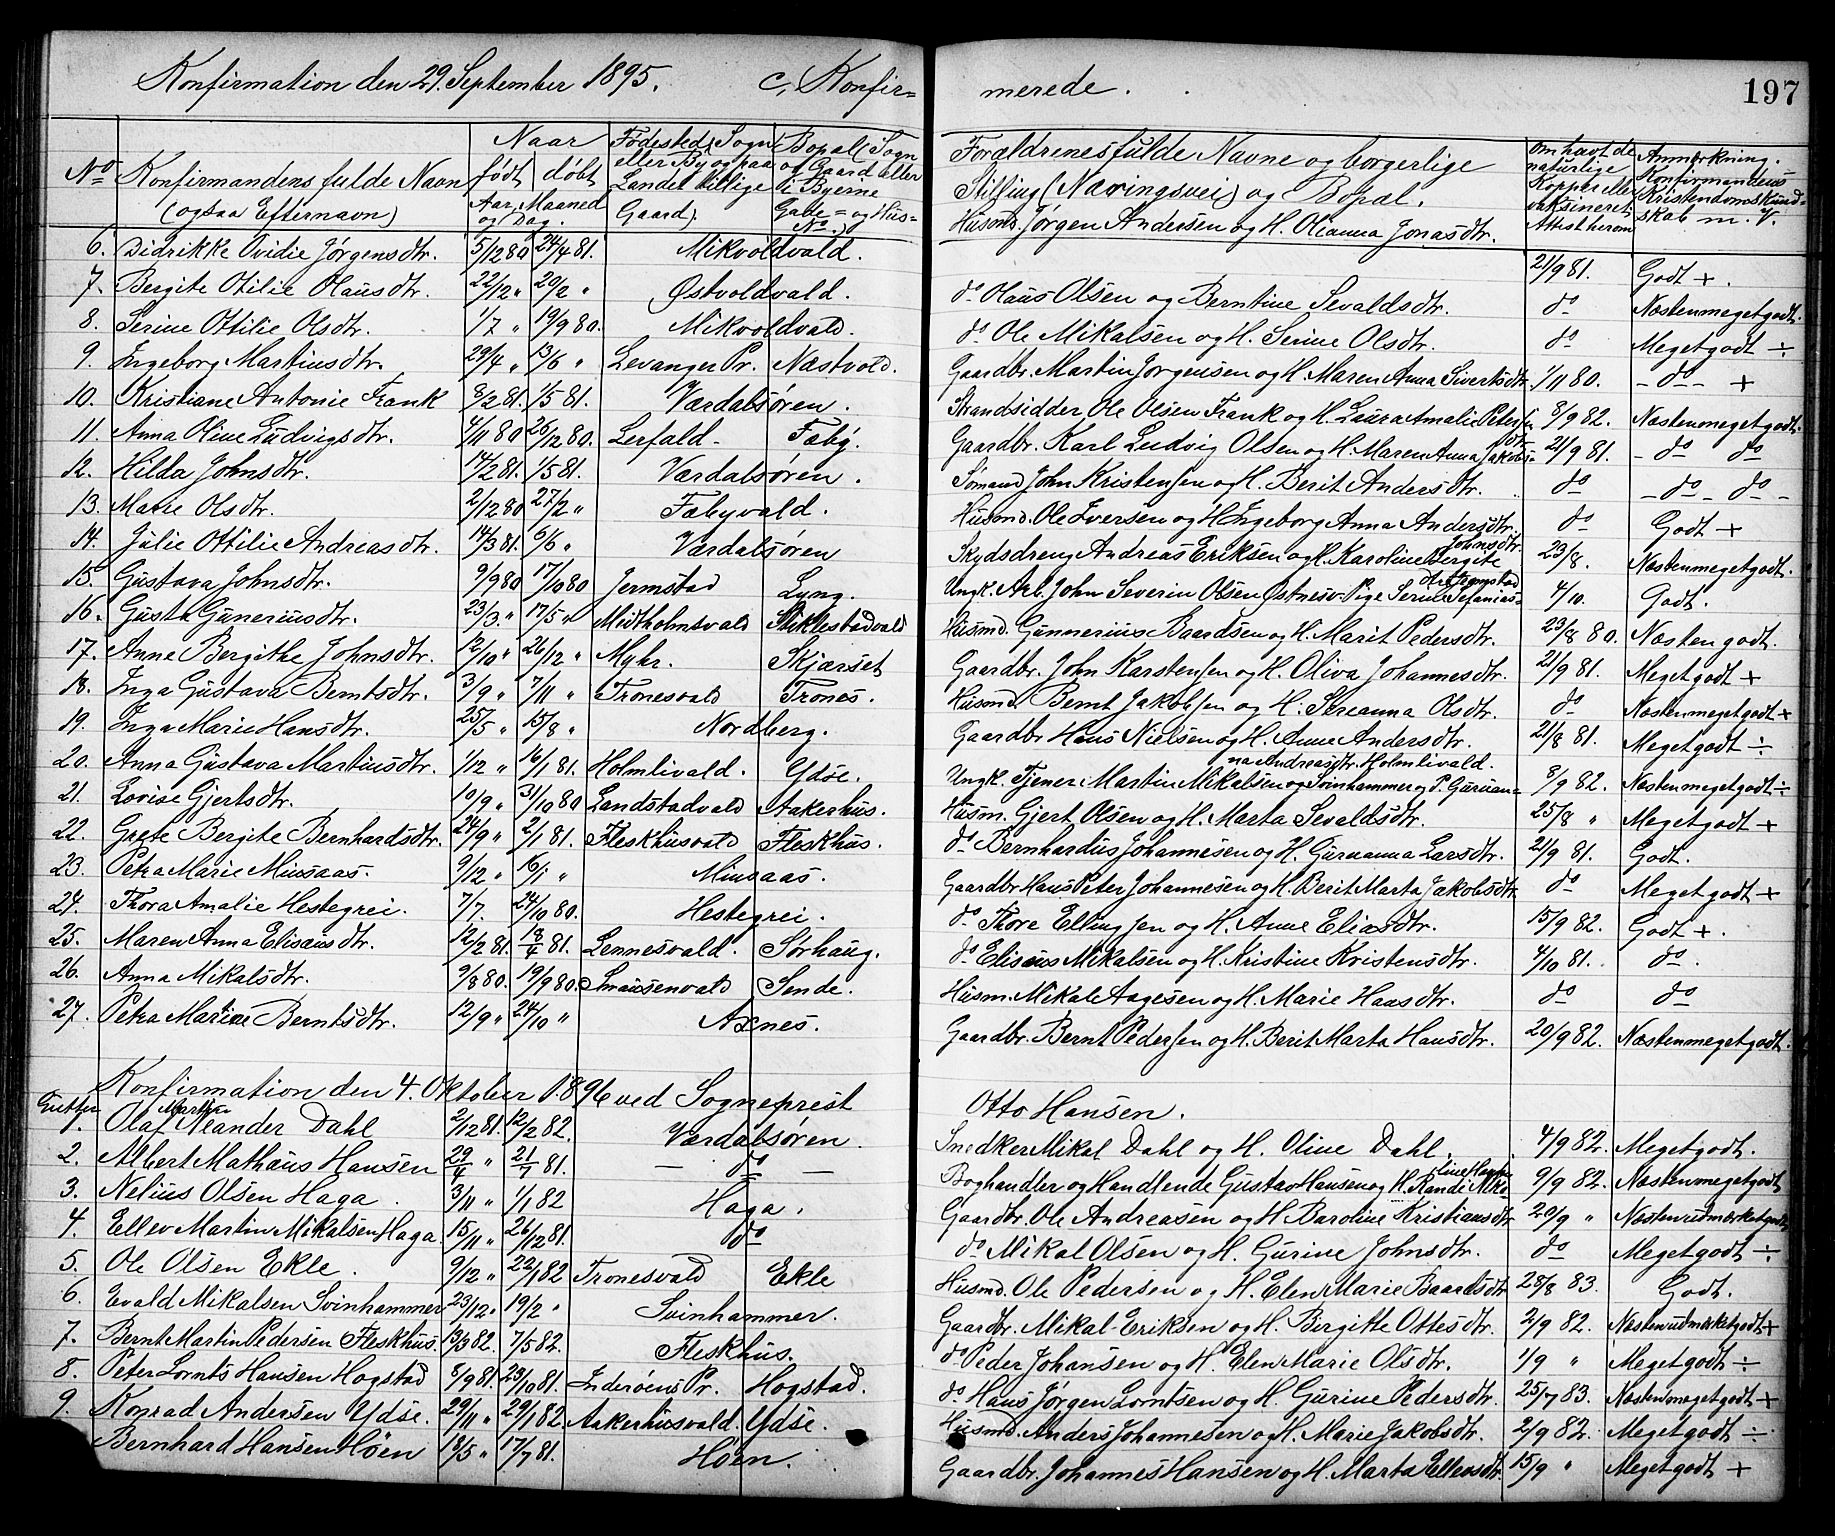 Konfirmation den 29. September 1895. c, Konfir= merede. 197
No Konfirmandens fulde Navn (ogsaa Efternavn) Naar født døbt Aar, Maaned og Dag. Fødested (Sogn eller By og paa Landet tillige Gaard). Bopæl (Sogn og Gaard eller i Byerne Gade= og Hus= No.) Forældrenes fulde Navne og borgerlige Stilling (Næringsvei) og Bopæl. Om havt de naturlige Kopper eller vaksineret, Attest herom Anmerkning. Konfirmandens Kristendomskundskab m. v.
6. Didrikke Ovidie Jørgensdtr. 5/12 80 24/4 81. Mikvoldvald. Husmd. Jørgen Andersen og H. Oleanna Jonasdtr. 21/9 81. Godt +.
7. Bergite Otilie Olausdtr. 22/12 " 20/2 " Østvoldvald. do Olaus Olsen og Berntine Sevaldsdtr. do Næstenmegetgodt.
8. Serine Ottilie Olsdtr. 1/7 " 19/9 80. Mikvoldvald. do Ole Mikalsen og H. Serine Olsdtr. do Megetgodt ÷
9. Ingeborg Martinsdtr. 29/4 " 13/6 " Levanger Pr. Næstvold. Gaardbr. Martin Jørgensen og H. Maren Anna Sivertsdtr. 1/11 80. - do - +
10. Kristiane Antonie Frank 8/2 81. 1/5 81. Værdalsøren. Strandsidder Ole Olsen Frank og H. Laura Amalie Peters 8/9 82. Næstenmegetgodt.
11. Anna Oline Ludvigsdtr. 4/11 80 26/12 80. Lerfald. Fæby. Gaardbr. Karl Ludvig Olsen og H. Maren Anna Jakobs= dtr. 21/9 81. - do do
12. Hilda Johnsdtr. 14/2 81. 1/5 81. Værdalsøren. Sømand John Kristensen og H. Berit Andersdtr. do - do - do -
13. Marie Olsdtr. 2/12 80 27/2 " Fæbyvald. Husmd. Ole Iversen og H. Ingeborg Anna Andersdtr. do Godt +
14. Julie Ottilie Andreasdtr. 14/3 81. 6/6 " Værdalsøren Skydsdreng Andreas Eriksen og H. Karoline Bergite Johnsdtr. 23/8. Næstenmegetgodt.
15. Gustava Johnsdtr. 9/9 80 17/10 80 Jermstad Lyng. Ungk. Arb. John Severin Olsen Østnesv. Pige Serine Stefanias= dtr. Jermstad 4/10. Godt.
16. Gusta Guneriusdtr. 23/3 " 17/5 " Midtholmsvald Stiklestadvald Husmd. Gunnerius Baardsen og H. Marit Pedersdtr. 23/8 80. Næsten godt.
17. Anna Bergithe Johnsdtr. 12/10 " 26/12 " Myhr. Skjærset Gaardbr. John Karstensen og H. Oliva Johannesdtr. 21/9 81. Megetgodt +
18. Inga Gustava Berntsdtr. 3/9 " 7/11 " Tronesvald Trones. Husmd. Bernt Jakobsen og H. Sereanna Olsdtr. do Næstenmegetgodt +
19. Inga Marie Hansdtr. 25/5 " 15/8 " Nordberg. Gaardbr. Hans Nielsen og H. Anne Andersdtr. 21/8 81. Megetgodt ÷
20. Anna Gustava Martinsdtr. 1/12 " 16/1 81. Holmlivald. Ydse. Ungk. Tjener Martin Mikalsen og Svinhammer og P. Guruan= na Andreasdtr. Holmlivald. 8/9 82. Næstenmegetgodt ÷
21. Lovise Gjertsdtr. 10/9 " 31/10 80 Landstadvald Aakerhus. Husm. Gjert Olsen og H. Marta Sevaldsdtr. 25/8 " Megetgodt +
22. Grete Bergite Bernhardsdtr. 24/9 " 2/1 81. Fleskhusvald Fleskhus. do Bernhardus Johannesen og H. Guruanna Larsdtr. 21/9 81. Godt.
23. Petra Marie Minsaas. 9/12 " 16/1 " Minsaas. Gaardbr. Hans Peter Johannesen og H. Berit Marta Jakobsdtr. do Megetgodt +
24. Thora Amalie Hestegrei. 7/7. 24/10 80. Hestegrei. do Thore Ellingsen og H. Anne Eliasdtr. 15/9 82. Godt +.
25. Maren Anna Elisæusdtr. 12/2 81. 18/4 81. Lennesvald. Sørhaug. do Elisæus Mikalsen og H. Kristine Kristensdtr. 4/10 81. do.
26. Anna Mikalsdtr. 9/8 80. 19/9 80. Smausenvald Sende. Husm. Mikal Aagesen og H. Marie Haasdtr. do do
27. Petra Marie Berntsdtr. 12/9 " 24/10 " Axnes. Gaardbr. Bernt Pedersen og H. Berit Marta Hansdtr. 20/9 82. Næstenmegetgodt.
Konfirmation den 4. Oktober 1896 ved Sogneprest Otto Hansen.
Gutter
1. Olaf Martin Neander Dahl 2/12 81. 12/2 82. Værdalsøren. Snedker Mikal Dahl og H. Oline Dahl. 4/9 82. Megetgodt.
2. Albert Mathæus Hansen 29/4 " 21/7 81. - do - Boghandler og Handlende Gustav Hansen og H. Randi Niko line Hansen 9/9 82. Næstenmegetgodt
3. Nelius Olsen Haga. 3/11 " 1/1 82 Haga. Gaardbr. Ole Andreasen og H. Baroline Kristiansdtr. 20/9 " Næstenudmerketgodt
4. Ellev Martin Mikalsen Haga. 15/11 " 26/12 81. do do Mikal Olsen og H. Gurine Johnsdtr. do Megetgodt ÷
5. Ole Olsen Ekle. 9/12 " 22/1 82 Tronesvald Ekle Husmd. Ole Pedersen og H. Elen Marie Baardsdtr. 28/8 83. Godt.
6. Evald Mikalsen Svinhammer 23/12 " 19/2 " Svinhammer. Gaardbr. Mikal Eriksen og H. Birgitte Ottesdtr. 2/9 82. Næstenudmerketgodt +
7. Bernt Martin Pedersen Fleskhus. 13/3 82. 7/5 82. Fleskhus. do Peder Johansen og H. Elen Marie Olsdtr. 1/9 " Megetgodt ÷
8. Peter Lornts Hansen Hogstad 8/9 81. 23/10 81. Inderøens Pr. Hogstad. do Hans Jørgen Lorntsen og H. Gurine Pedersdtr. 25/7 83. Næstenmegetgodt +
9. Konrad Andersen Ydse. 29/11 " 29/1 82. Aakerhusvald. Ydse. Husmd. Anders Johannesen og H. Marie Jakobsdtr. 2/9 82. Megetgodt ÷
Bernhard Hansen Høen 18/5 " 17/7 81. Høen. Gaardbr. Johannes Hansen og H. Marta Ellevsdtr. 15/9 " Megetgodt +